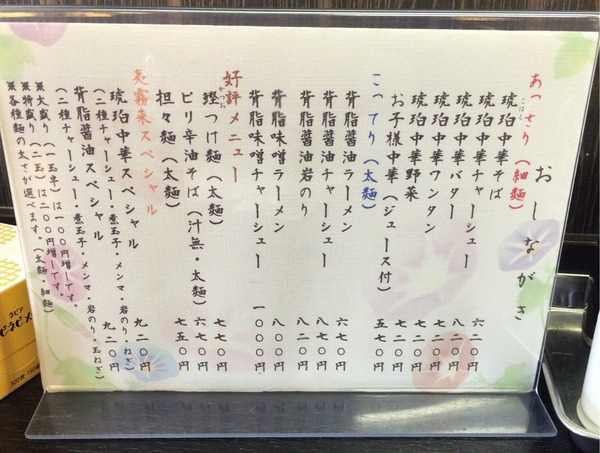 おしながき
あっさり(細麺)
琥珀中華そば 六二〇円
こはく
琥珀中華チャーシュー 八二〇円
琥珀中華バター 七二〇円
琥珀中華ワンタン 七二〇円
琥珀中華野菜 七二〇円
お子様中華(ジュース付) 五七〇円
こってり(太麺)
背脂醤油ラーメン 六七〇円
背脂醤油チャーシュー 八七〇円
背脂醤油岩のり 八二〇円
背脂味噌ラーメン 八〇〇円
背脂味噌チャーシュー 一〇〇〇円
好評メニュー
鰹つけ麺(太麺) 七七〇円
かつお
ピリ辛油そば(汁無・太麺) 六七〇円
担々麺(太麺) 七五〇円
霧来スペシャル
琥珀中華スペシャル 九二〇円
(二種チャーシュー・煮玉子・メンマ・岩のり・ねぎ)
背脂醤油スペシャル 九二〇円
(二種チャーシュー・煮玉子・メンマ・岩のり・玉ねぎ)
※大盛り(一玉半)は一〇〇円増しです。
※特盛り(二玉)は二〇〇円増しです。
※各種麺の太さが選べます。(太麺・細麺)